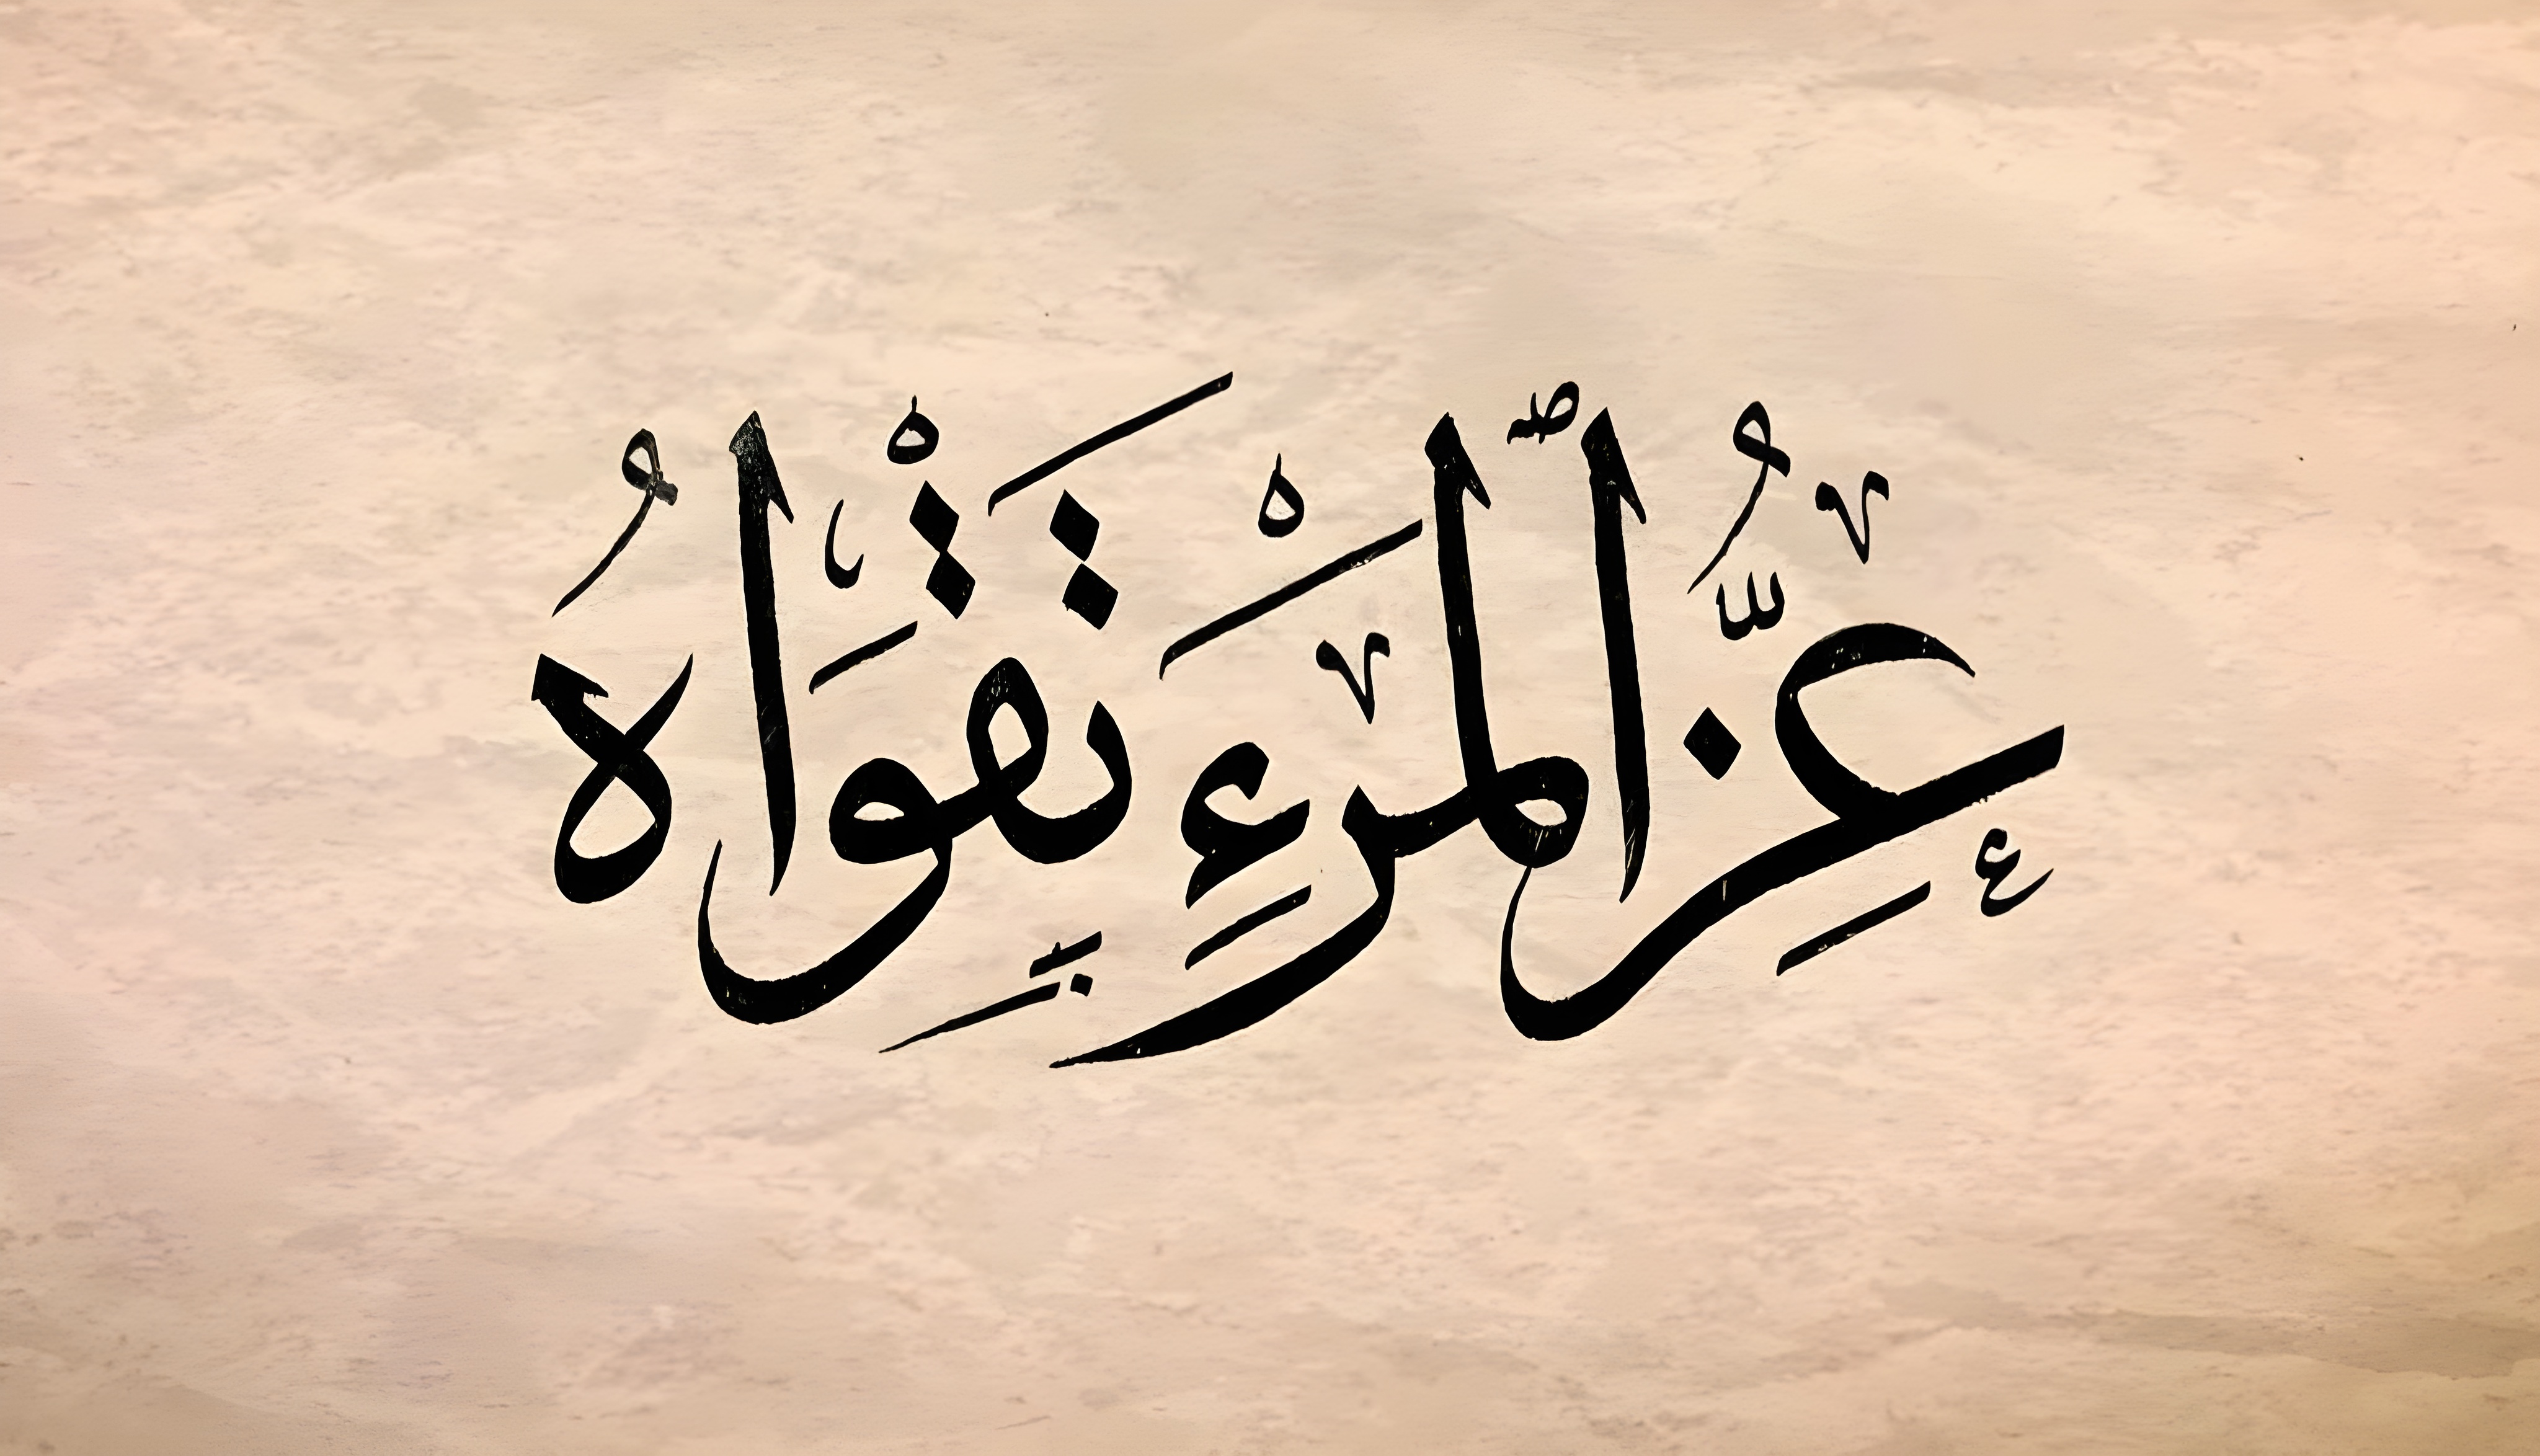 عِزُّ ٱلْمَرْءِ تَقْوَاهُ